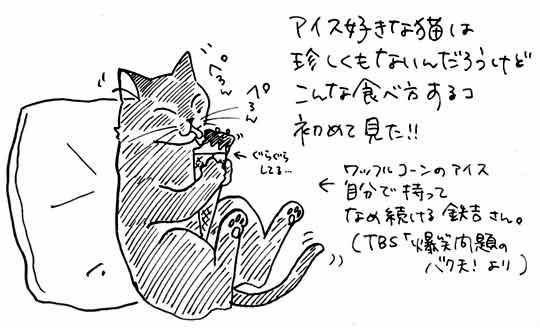 アイス好きな猫は
珍しくもないんだろうけど
こんな食べ方あるコ
初めて見た!!
ぺろん
ぺろん
←ぐらぐら
してる…
← ワッフルコーンのアイス
自分で持って
なめ続ける 鉄吉さん。
(TBS「爆笑問題の
バク天!より)